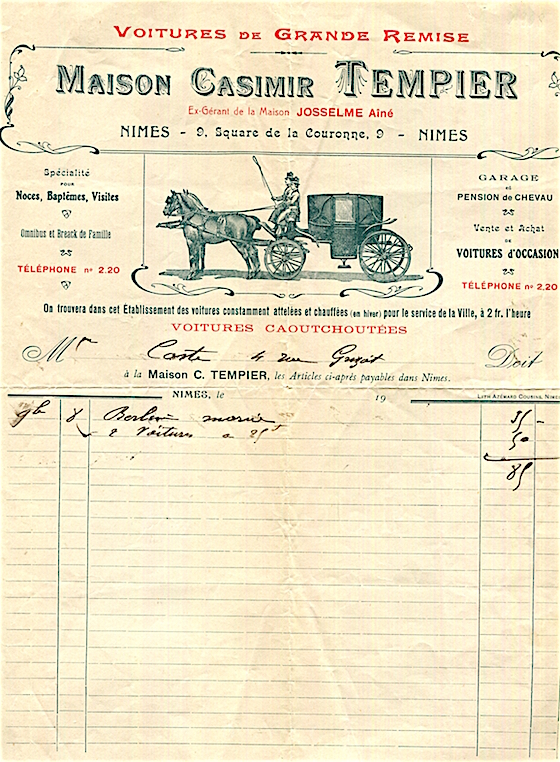 VOITURES DE GRANDE REMISE
MAISON CASIMIR TEMPIER
Ex-Gérant de la Maison JOSSELME Aîné
NIMES - 9, Square de la Couronne, 9 - NIMES
Spécialité
POUR
Noces, Baptêmes, Visites
Omnibus et Breack de Famille
TÉLÉPHONE nº 2.20
GARAGE
et
PENSION DE CHEVAU
Vente et Achat
DE
VOITURES d'OCCASION
TÉLÉPHONE nº 2,20
On trouvera dans cet Établissement des voitures constamment attelées et chauffées (en hiver) pour le service de la Ville, à 2 fr. l'heure
VOITURES CAOUTCHOUTÉES
Mr Coste 4 rue Doit
à la Maison C. TEMPIER, les Articles ci-après payables dans Nimes.
NIMES, le 19
LITH AZÉMARD COUSINS, NIMES
9b 8 Berline 35 -
2 Voitures a 25f 50
85